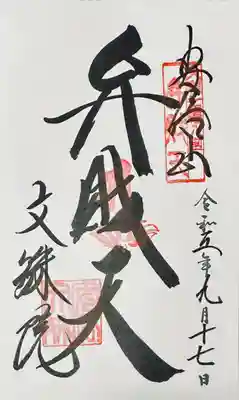 令和五年九月十七日
弁財天
文殊院